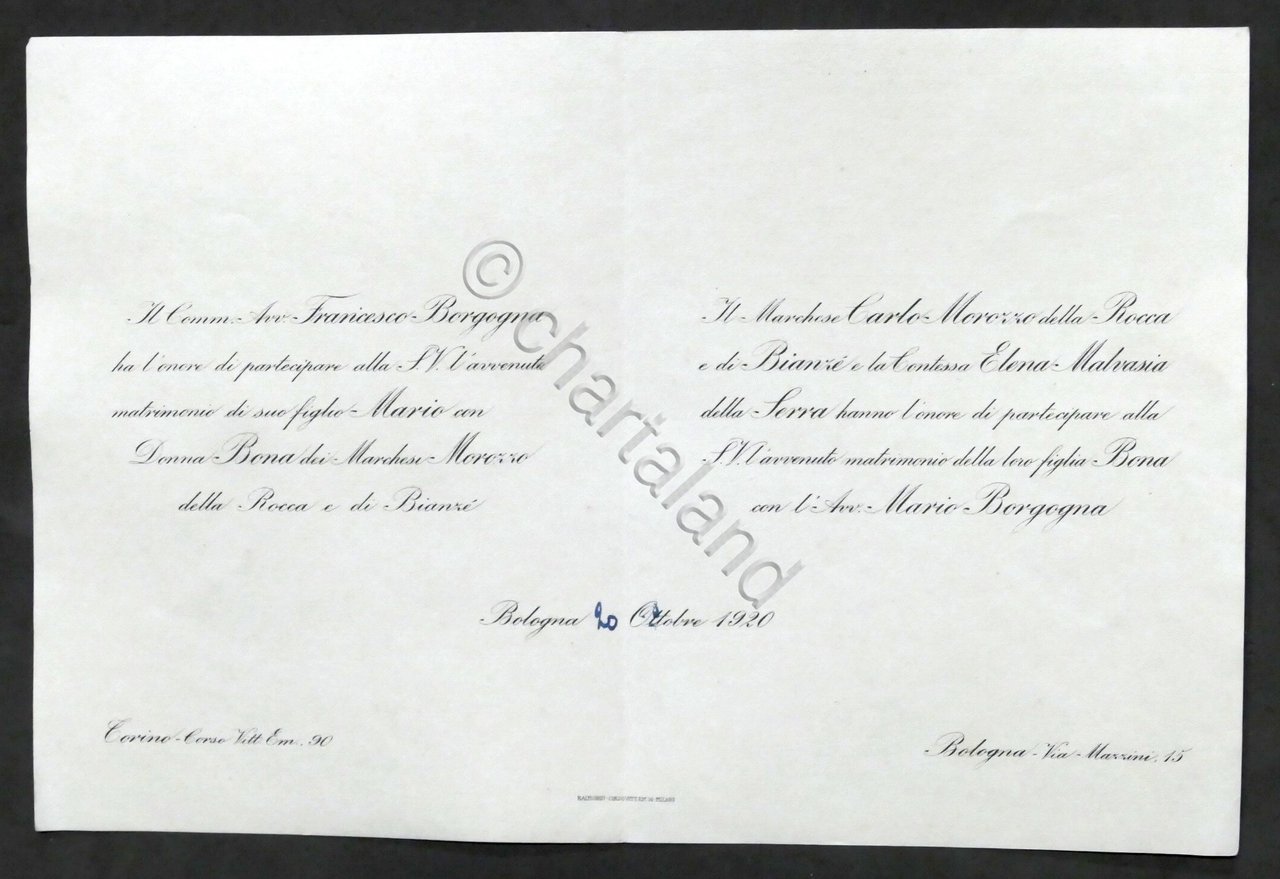 Il Comm. Avv. Francesco Borgogna
ha l'onore di partecipare alla S.V. l'avvenuto
matrimonio di suo figlio Mario con
Donna Bona dei Marchesi Morozzo
della Rocca e di Bianzé
Il Marchese Carlo Morozzo della Rocca
e di Bianzé e la Contessa Elena Malvasia
della Serra hanno l'onore di partecipare alla
S.V. l'avvenuto matrimonio della loro figlia Bona
con l'Avv. Mario Borgogna
Bologna 20 Ottobre 1920
Torino - Corso Vitt. Em. 90
Bologna - Via Mazzini, 15
© chartaland